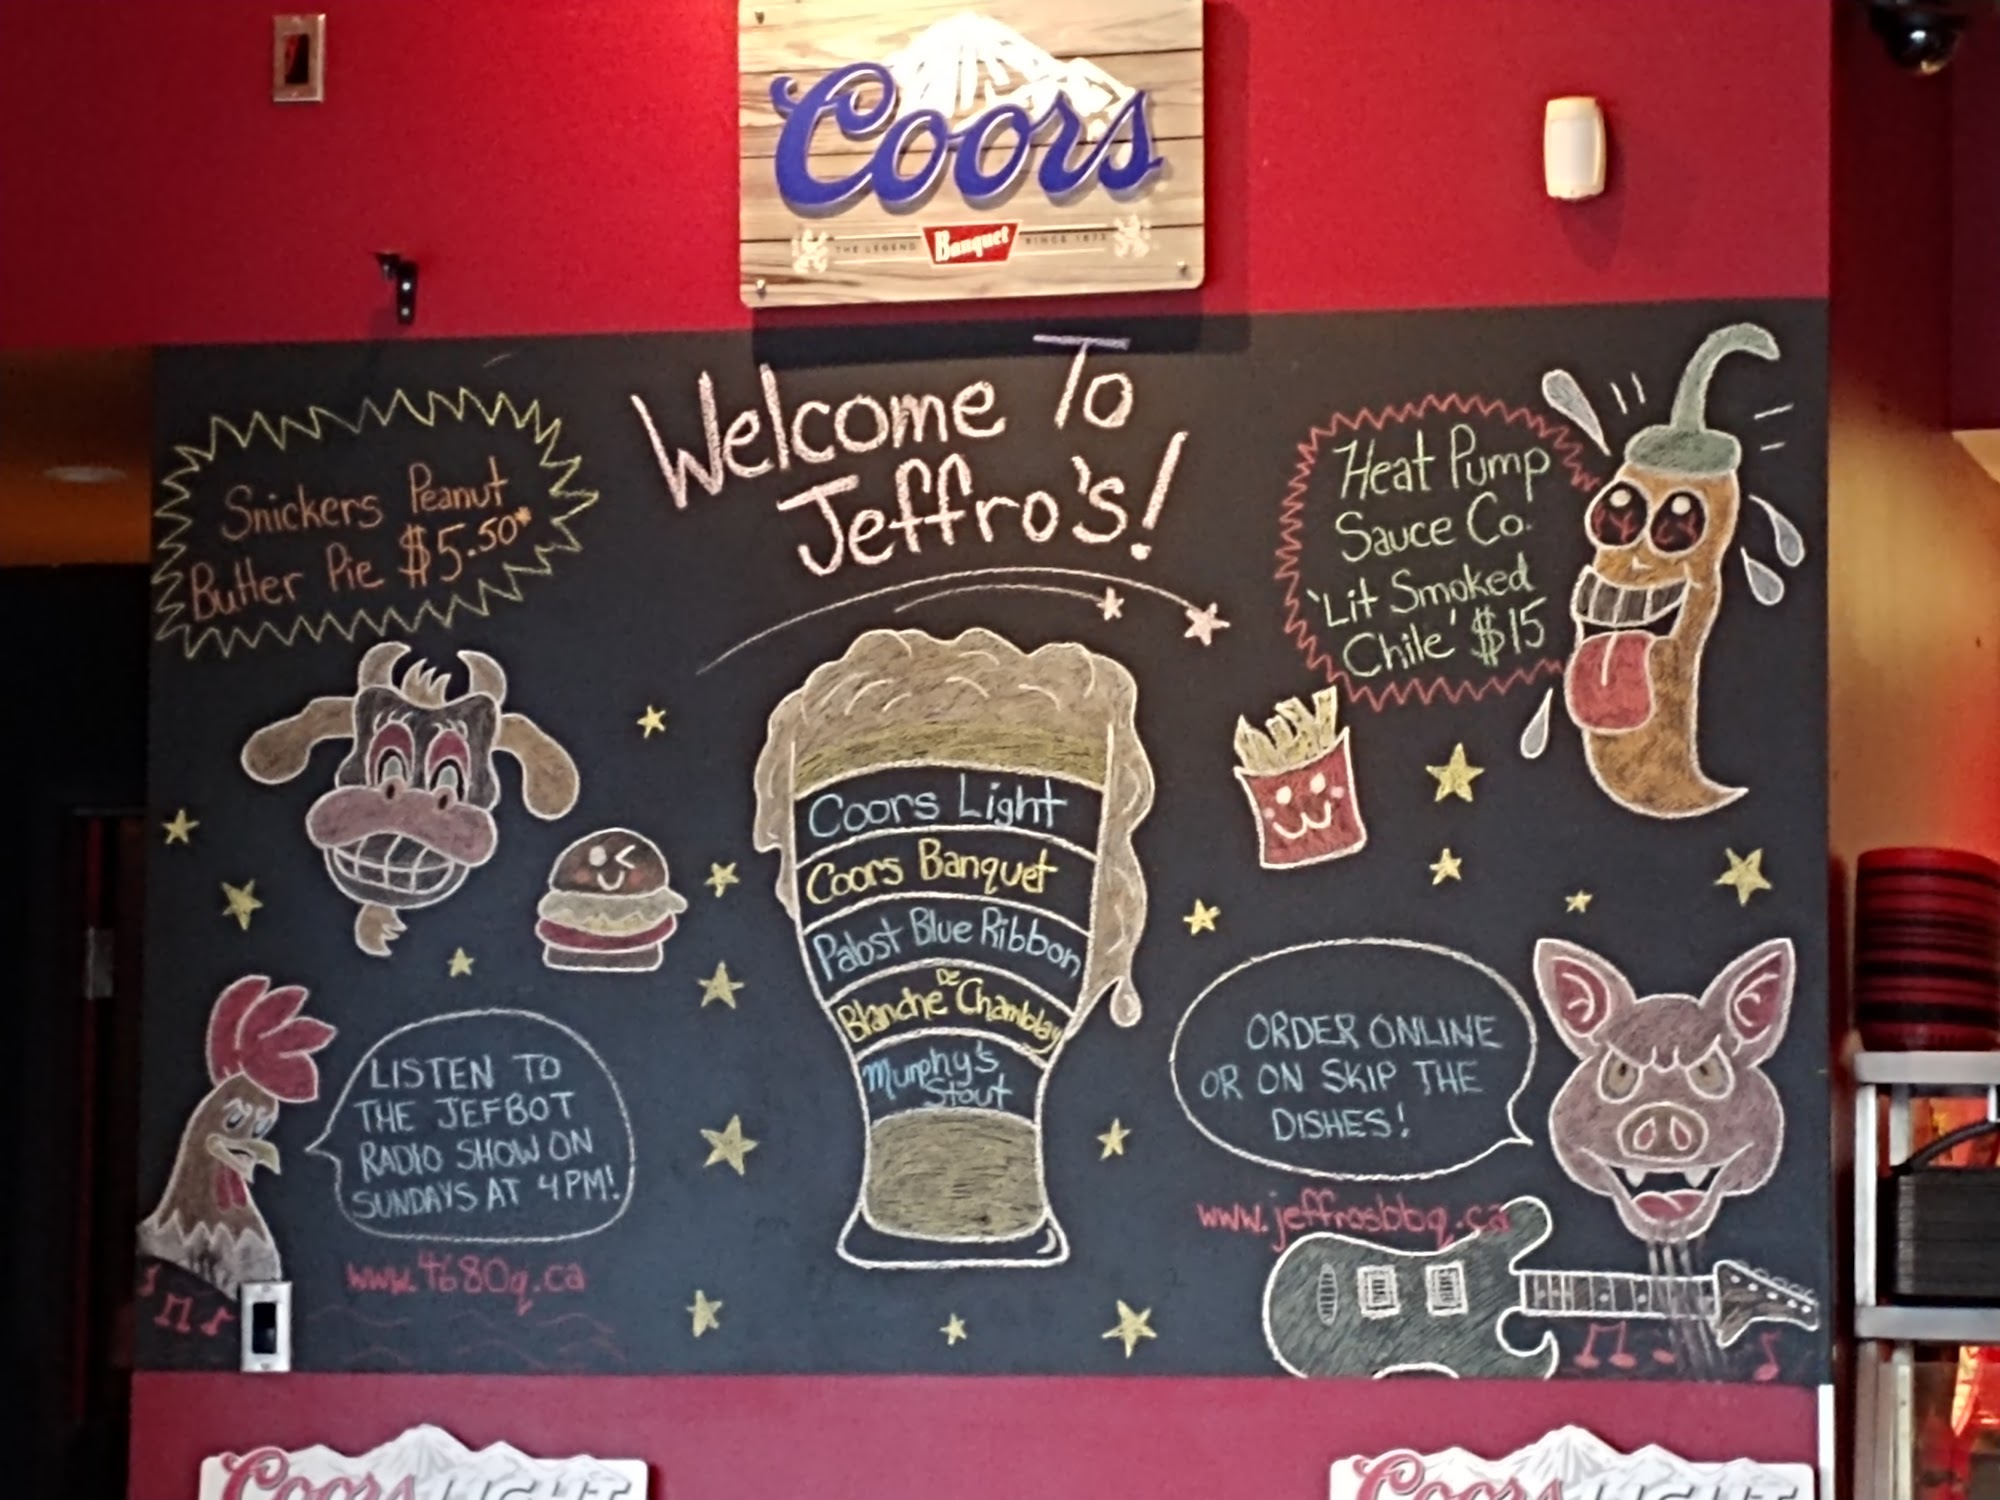 Coors
THE LEGEND Banquet SINCE 1873
Welcome To
Jeffro's!
Snickers Peanut
Butter Pie $5.50*
Heat Pump
Sauce Co.
'Lit Smoked
Chile' $15
Coors Light
Coors Banquet
Pabst Blue Ribbon
Blanche DE Chambly
Murphy's
Stout
LISTEN TO
THE JEFBOT
RADIO SHOW ON
SUNDAYS AT 4PM!
www.4680q.ca
ORDER ONLINE
OR ON SKIP THE
DISHES!
www.jeffrosbbq.ca
Coors LIGHT
Coors LIGHT